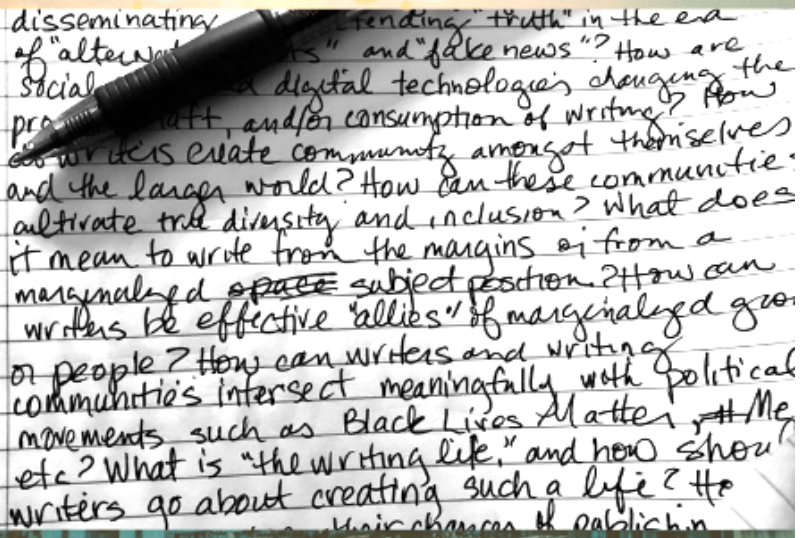 disseminating "truth" in the era
of and "fake news"? How are
social digital technologies changing the
and/or consumption of writing? How
writers create community amongst themselves
and the larger world? How can these communities
cultivate true diversity and inclusion? What does
it mean to write from the margins or from a
marginalized space subject position? How can
writers be effective "allies" of marginalized
or people? How can writers and writing
communities intersect meaningfully with political
movements such as Black Lives Matter, # Me
etc? What is "the writing life," and how
writers go about creating such a life?
their chances of